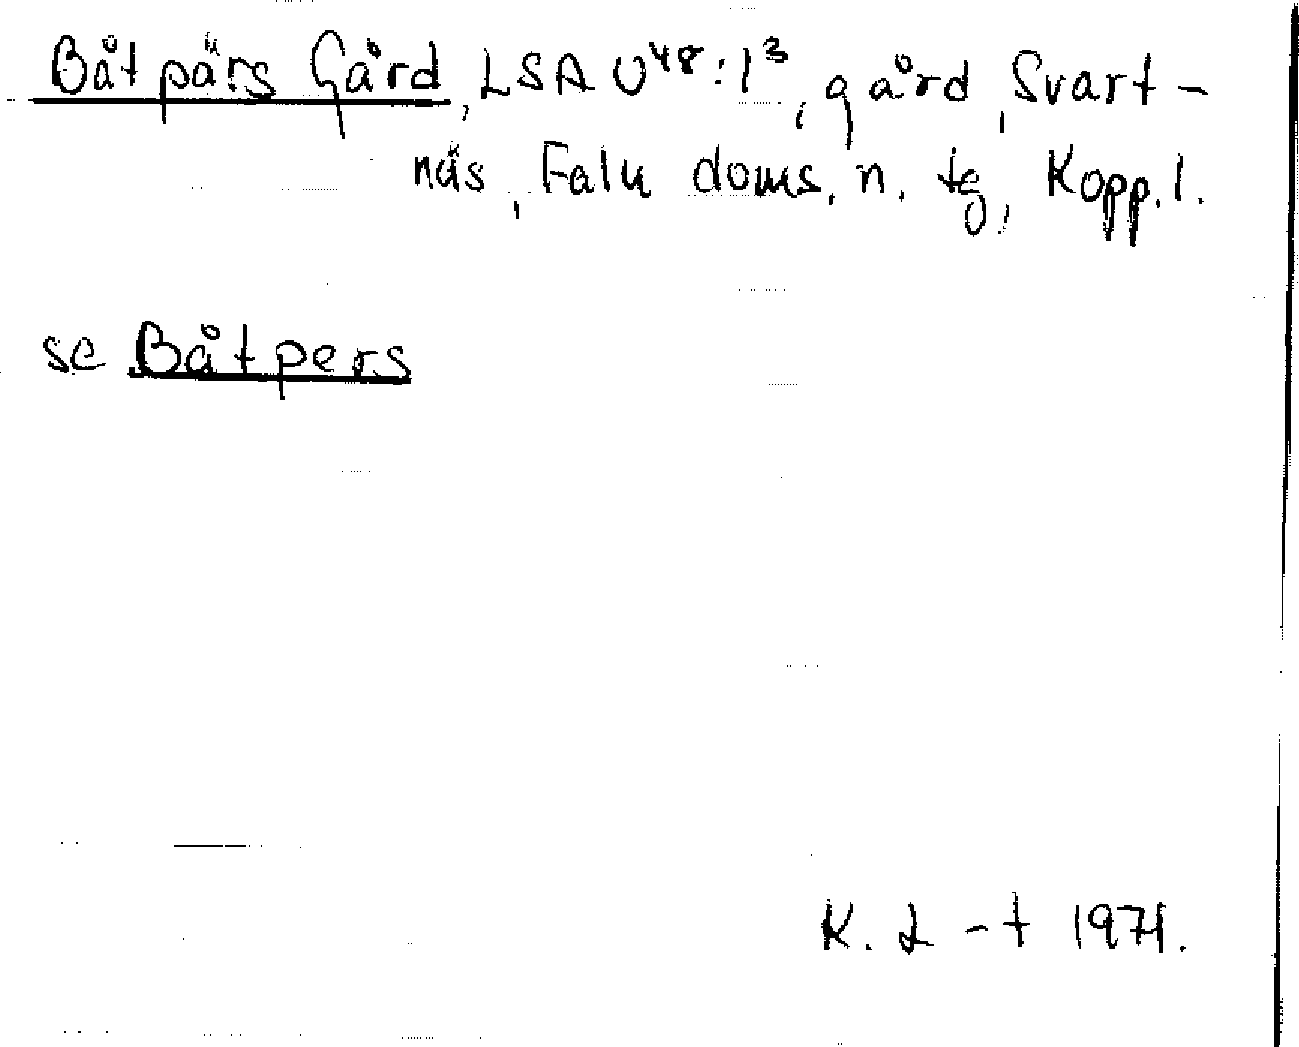 Båtpärs Gård, LSA U⁴⁸:1³, gård, Svart-
näs, Falu doms. n. tg, Kopp. l.
se Båtpers
K. L-t 1971.